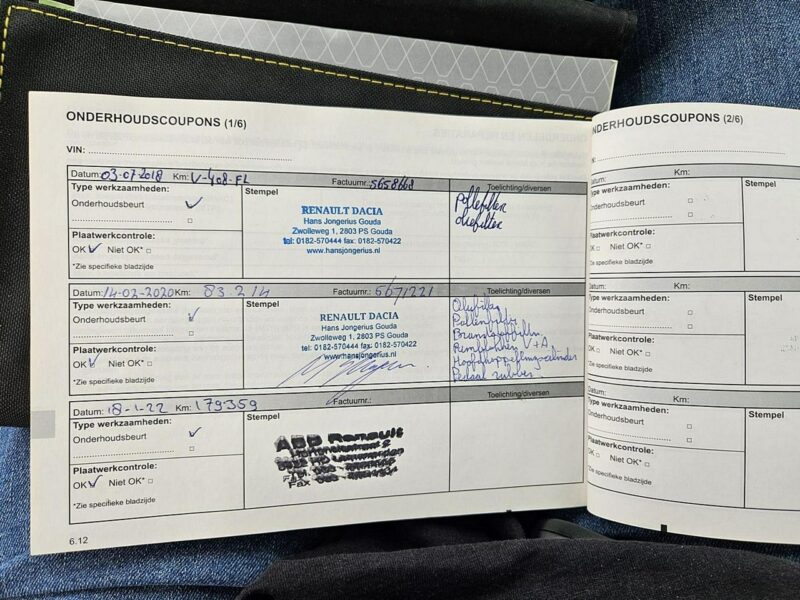 ONDERHOUDSCOUPONS (1/6)
VIN:
Datum: 03-07-2018 Km: V-408-FL Factuurnr.: 5658668 Toelichting/diversen
Type werkzaamheden: Stempel
Onderhoudsbeurt ✓
Plaatwerkcontrole:
OK ✓ Niet OK* □
*Zie specifieke bladzijde
RENAULT DACIA
Hans Jongerius Gouda
Zwolleweg 1, 2803 PS Gouda
tel: 0182-570444 fax: 0182-570422
www.hansjongerius.nl
Pollenfilter
oliefilter
Datum: 14-02-2020 Km: 83.214 Factuurnr.: 5671221 Toelichting/diversen
Type werkzaamheden: Stempel
Onderhoudsbeurt ✓
Plaatwerkcontrole:
OK ✓ Niet OK* □
*Zie specifieke bladzijde
RENAULT DACIA
Hans Jongerius Gouda
Zwolleweg 1, 2803 PS Gouda
tel: 0182-570444 fax: 0182-570422
www.hansjongerius.nl
Oliefilter
Pollenfilter
Brandstoffilter
Remblokken V+A
Hoofdkoppelingscilinder
Pedaal rubber
Datum: 18-1-22 Km: 179359 Factuurnr.: Toelichting/diversen
Type werkzaamheden: Stempel
Onderhoudsbeurt ✓
Plaatwerkcontrole:
OK ✓ Niet OK* □
*Zie specifieke bladzijde
ABD Renault
6.12
NDERHOUDSCOUPONS (2/6)
N:
Datum: Km:
Type werkzaamheden: Stempel
Onderhoudsbeurt □
Plaatwerkcontrole:
OK □ Niet OK* □
*Zie specifieke bladzijde
Datum: Km:
Type werkzaamheden: Stempel
Onderhoudsbeurt □
Plaatwerkcontrole:
OK □ Niet OK* □
*Zie specifieke bladzijde
Datum: Km:
Type werkzaamheden: Stempel
Onderhoudsbeurt □
Plaatwerkcontrole:
OK □ Niet OK* □
*Zie specifieke bladzijde